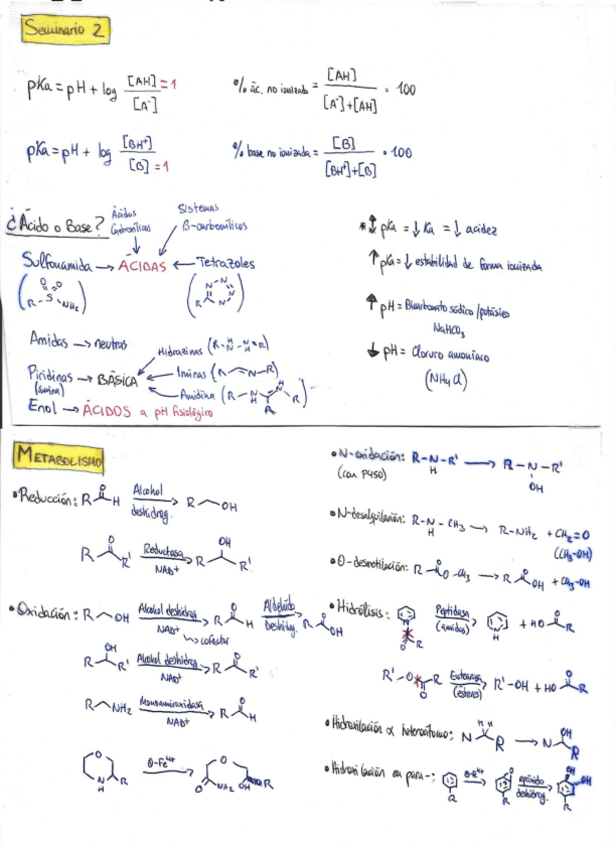 Seminario 2
pKa = pH + log [AH] = 1 / [A⁻]
% ác. no ionizado = [AH] / [A⁻]+[AH] · 100
pKa = pH + log [BH⁺] / [B] = 1
% base no ionizada = [B] / [BH⁺]+[B] · 100
¿Ácido o Base?
Ácidos Carboxílicos
Sistemas β-carbonílicos
Sulfonamida → ÁCIDAS ← Tetrazoles
R-S-NH₂
Amidas → neutros
Hidrazinas (R-N-N-R)
Piridinas (amina) → BÁSICA
Iminas (R N-R)
Amidina
Enol → ÁCIDOS a pH fisiológico
* ↑ pKa = ↓ Ka = ↓ acidez
↑ pKa = ↓ estabilidad de forma ionizada
↑ pH = Bicarbonato sódico/potásico
NaHCO₃
↓ pH = Cloruro amoníaco
(NH₄Cl)
METABOLISMO
• Reducción: R H Alcohol deshidrog. → R OH
R R' Reductasa NAD⁺ → R OH R'
• Oxidación: R OH Alcohol deshidrog NAD⁺ → R H Aldehído Deshidrog. → R OH
↳ cofactor
R OH R' Alcohol deshidrog NAD⁺ → R R'
R NH₂ Monoaminoxidasa NAD⁺ → R H
• N-oxidación: R-N-R' → R-N-R'
(con P450) H OH
• N-desalquilación: R-N-CH₃ → R-NH₂ + CH₂=O
H (CH₃-OH)
• O-desmetilación: R O-CH₃ → R OH + CH₃-OH
• Hidrólisis: Peptidasa (amidas) → + HO R
R'-O R Esterasa (éster) → R'-OH + HO R
• Hidroxilación α heteroátomo: N R → N OH R
• Hidroxilación en para-: epóxido deshidrog.